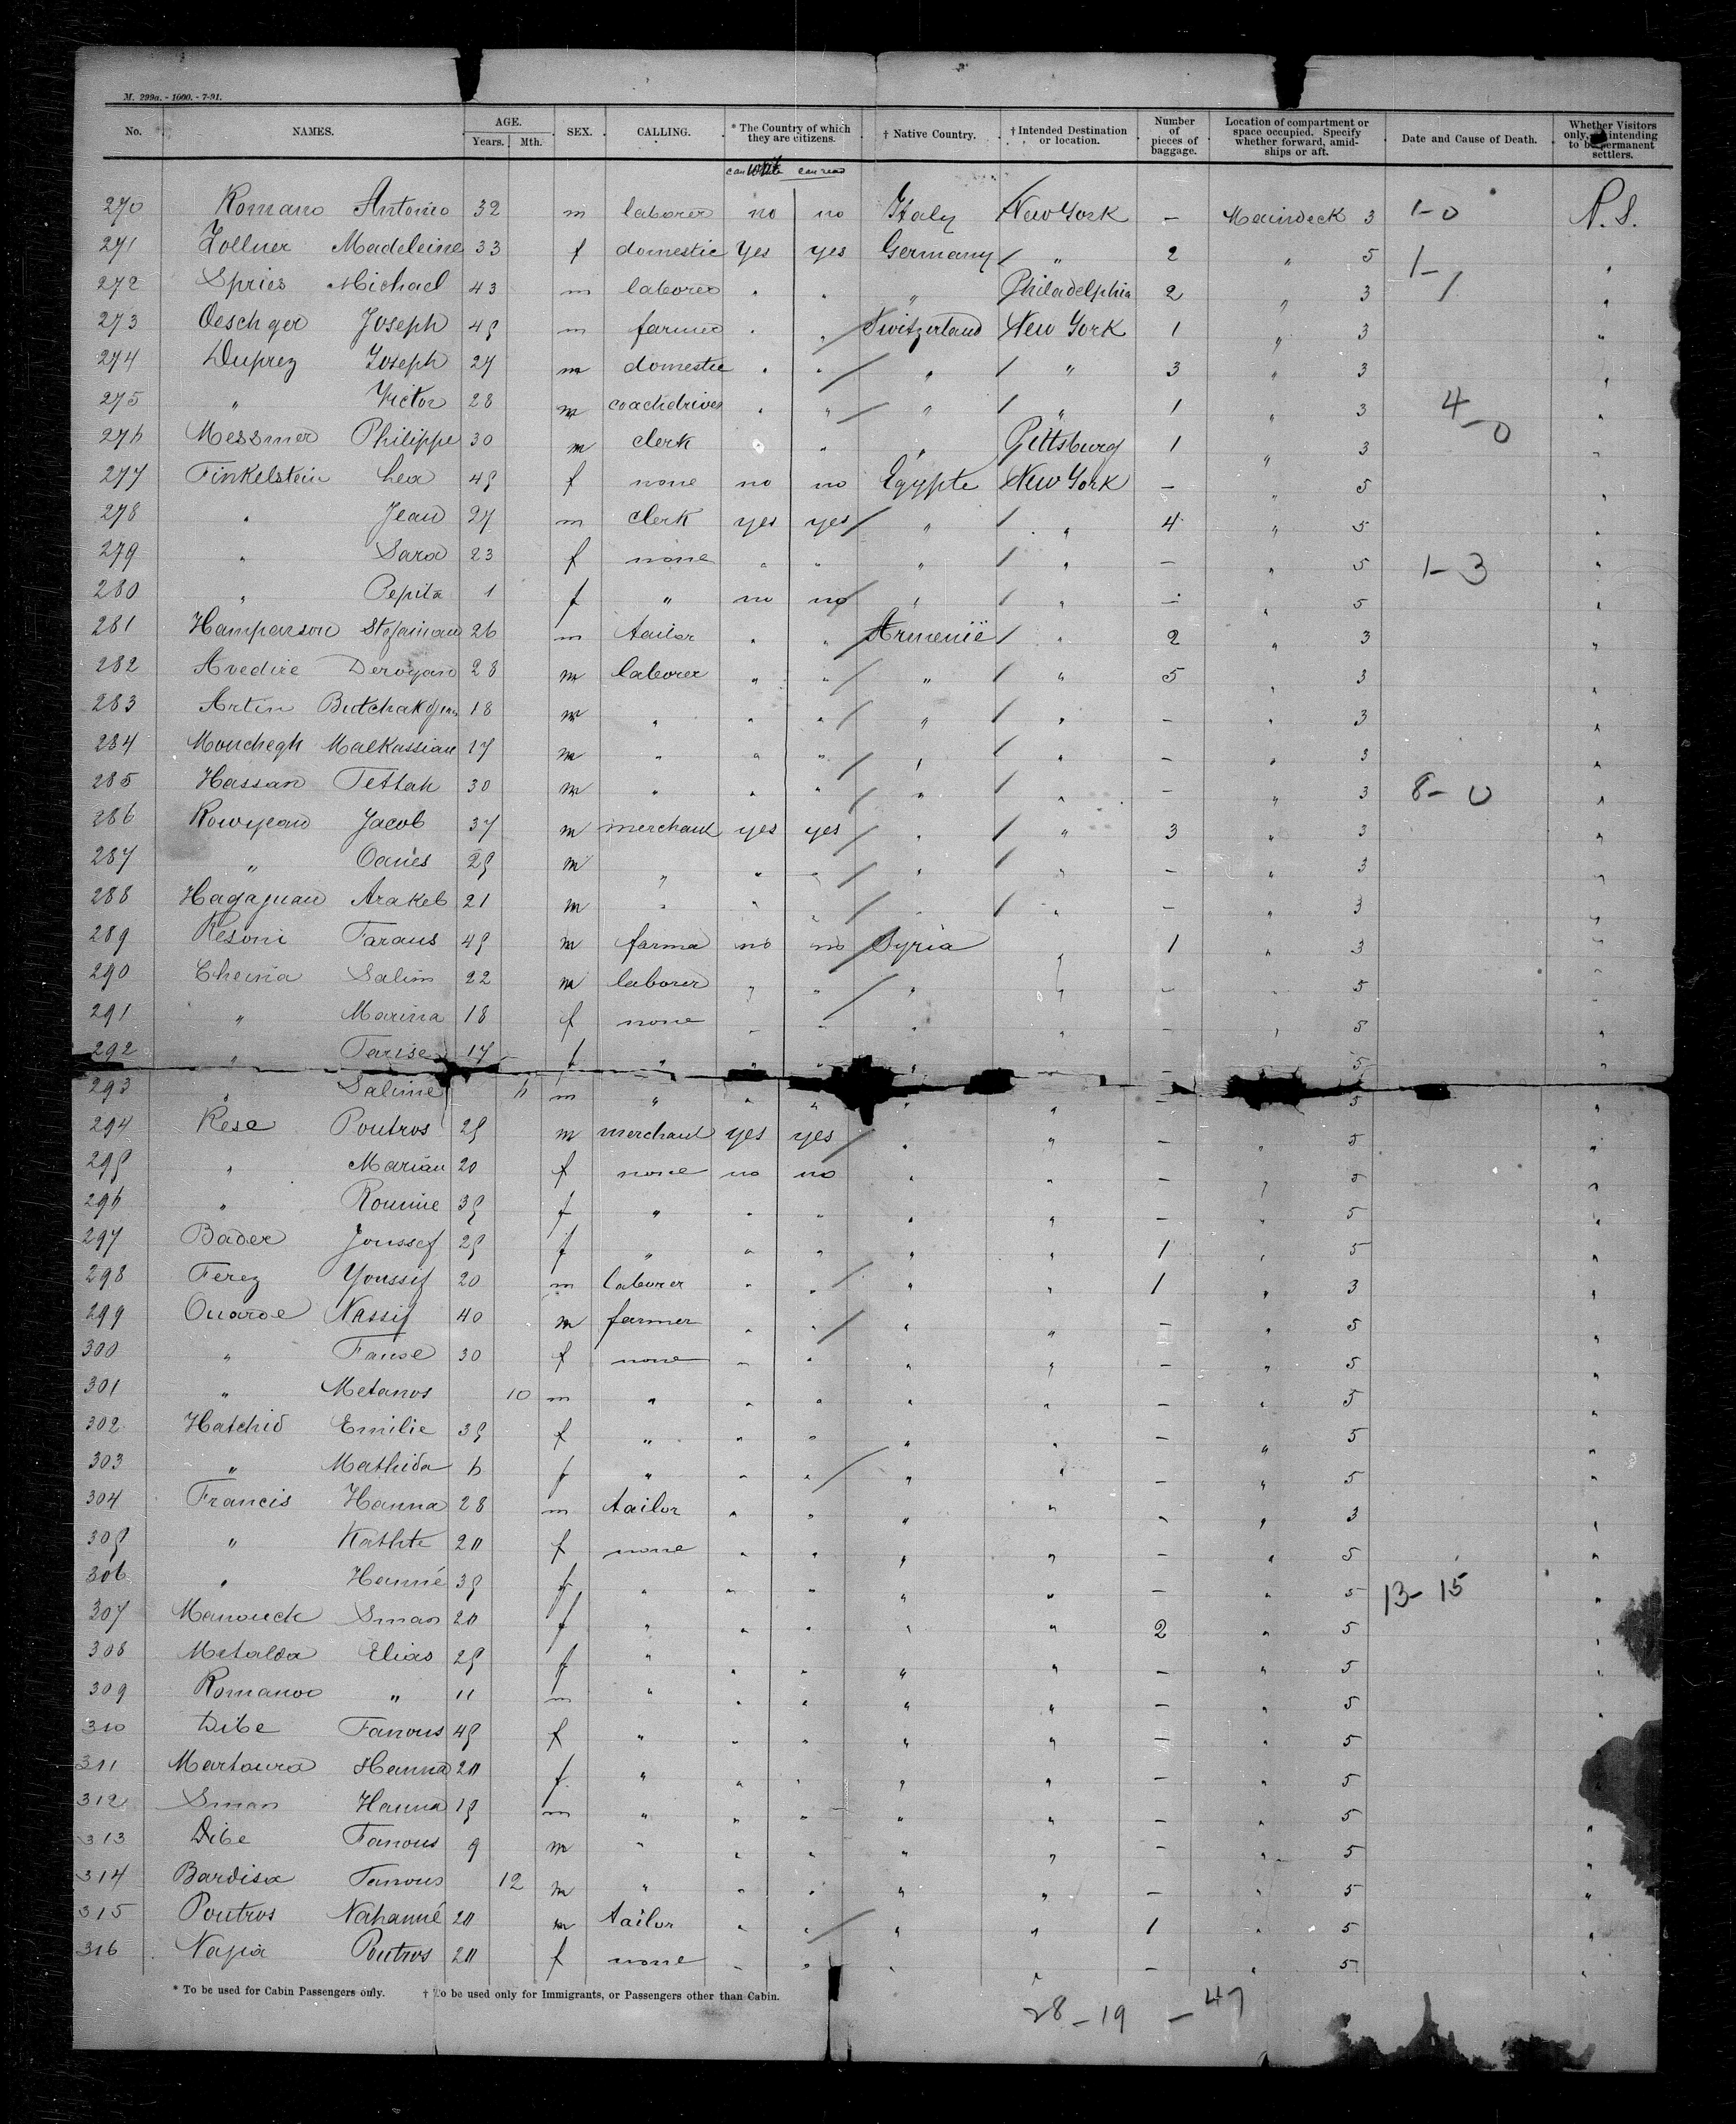 M. 299a. - 1000. - 7-91.
No. NAMES. AGE. Years. Mth. SEX. CALLING. * The Country of which they are citizens. † Native Country. † Intended Destination or location. Number of pieces of baggage. Location of compartment or space occupied. Specify whether forward, amidships or aft. Date and Cause of Death. Whether Visitors only, intending to be permanent settlers.
can write can read
270 Romano Antonio 32 m laborer no no Italy New York - Maindeck 3 1-0
271 Zollner Madeleine 33 f domestic Yes yes Germany " 2 " 5 "
272 Spries Michael 43 m laborer " " " Philadelphia 2 " 3 1-1 "
273 Oeschger Joseph 45 m farmer " " Switzerland New York 1 " 3 "
274 Duprez Joseph 27 m domestic " " " " 3 " 3 "
275 " Victor 28 m coachdriver " " " " 1 " 3 4-0 "
276 Messmer Philippe 30 m clerk " " " Pittsburg 1 " 3 "
277 Finkelstein Lea 45 f none no no Egypte New York - " 5 "
278 " Jean 27 m clerk yes yes " " 4 " 5 "
279 " Sara 23 f none " " " " - " 5 1-3 "
280 " Pepita 1 f " no no " " - " 5 "
281 Hamparson 26 m tailor " " Armenië " 2 " 3 "
282 Avedire Deroyan 28 m laborer " " " " 5 " 3 "
283 Artin 18 m " " " " " - " 3 "
284 Mouchegh Malkassian 17 m " " " " " - " 3 "
285 Hassan Tettah 30 m " " " " " - " 3 8-0 "
286 Jacob 37 m merchant yes yes " " 3 " 3 "
287 " Oanies 25 m " " " " " - " 3 "
288 Arakel 21 m " " " " " - " 3 "
289 Resoni Faraus 45 m farma no no Syria " 1 " 3 "
290 Salim 22 m laborer " " " " - " 5 "
291 " Marina 18 f none " " " " - " 5 "
292 " Tarise 17 f " " " " " - 5 "
293 " Salime 6 m " " " " " - 5 "
294 Rese Poutros 25 m merchant yes yes " " - " 5 "
295 " Marian 20 f none no no " " - " 5 "
296 " Roumie 35 f " " " " " - " 5 "
297 Bader Joussef 25 f " " " " " 1 " 5 "
298 Ferez Youssif 20 m laborer " " " " 1 " 3 "
299 Ouarde Nassif 40 m farmer " " " " - " 5 "
300 " Fause 30 f none " " " " - " 5 "
301 " Metanos 10 m " " " " " - " 5 "
302 Hatchid Emilie 35 f " " " " " - " 5 "
303 " Mathida 6 f " " " " " - " 5 "
304 Francis Hanna 28 m tailor " " " " - " 3 "
305 " Kathte 20 f none " " " " - " 5 "
306 " Hanné 35 f " " " " " - " 5 13-15 "
307 Manouck Sman 20 f " " " " " 2 " 5 "
308 Metalda Elias 25 f " " " " " - " 5 "
309 Romanoo " 11 m " " " " " - " 5 "
310 Dibe Fanous 45 f " " " " " - " 5
311 Martoura Hanna 20 f " " " " " - " 5
312 Sman Hanna 15 m " " " " " - " 5 "
313 Dibe Fanous 9 m " " " " " - " 5 "
314 Bardisa Tanous 12 m " " " " " - " 5 "
315 Poutros Nahanné 20 m tailor " " " " 1 " 5 "
316 Najia Poutros 20 f none " " " " - " 5 "
* To be used for Cabin Passengers only. † To be used only for Immigrants, or Passengers other than Cabin.
28-19 - 47